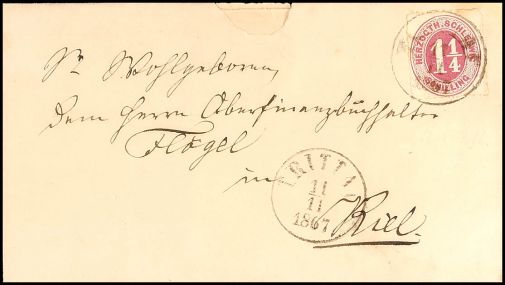 HERZOGTH. SCHLESWIG
1 1/4
SCHILLING
Sr. Wohlgeboren,
dem Herrn Oberfinanzbuchhalter
Flögel
in
Kiel.
TRITTAU
11
11
1867